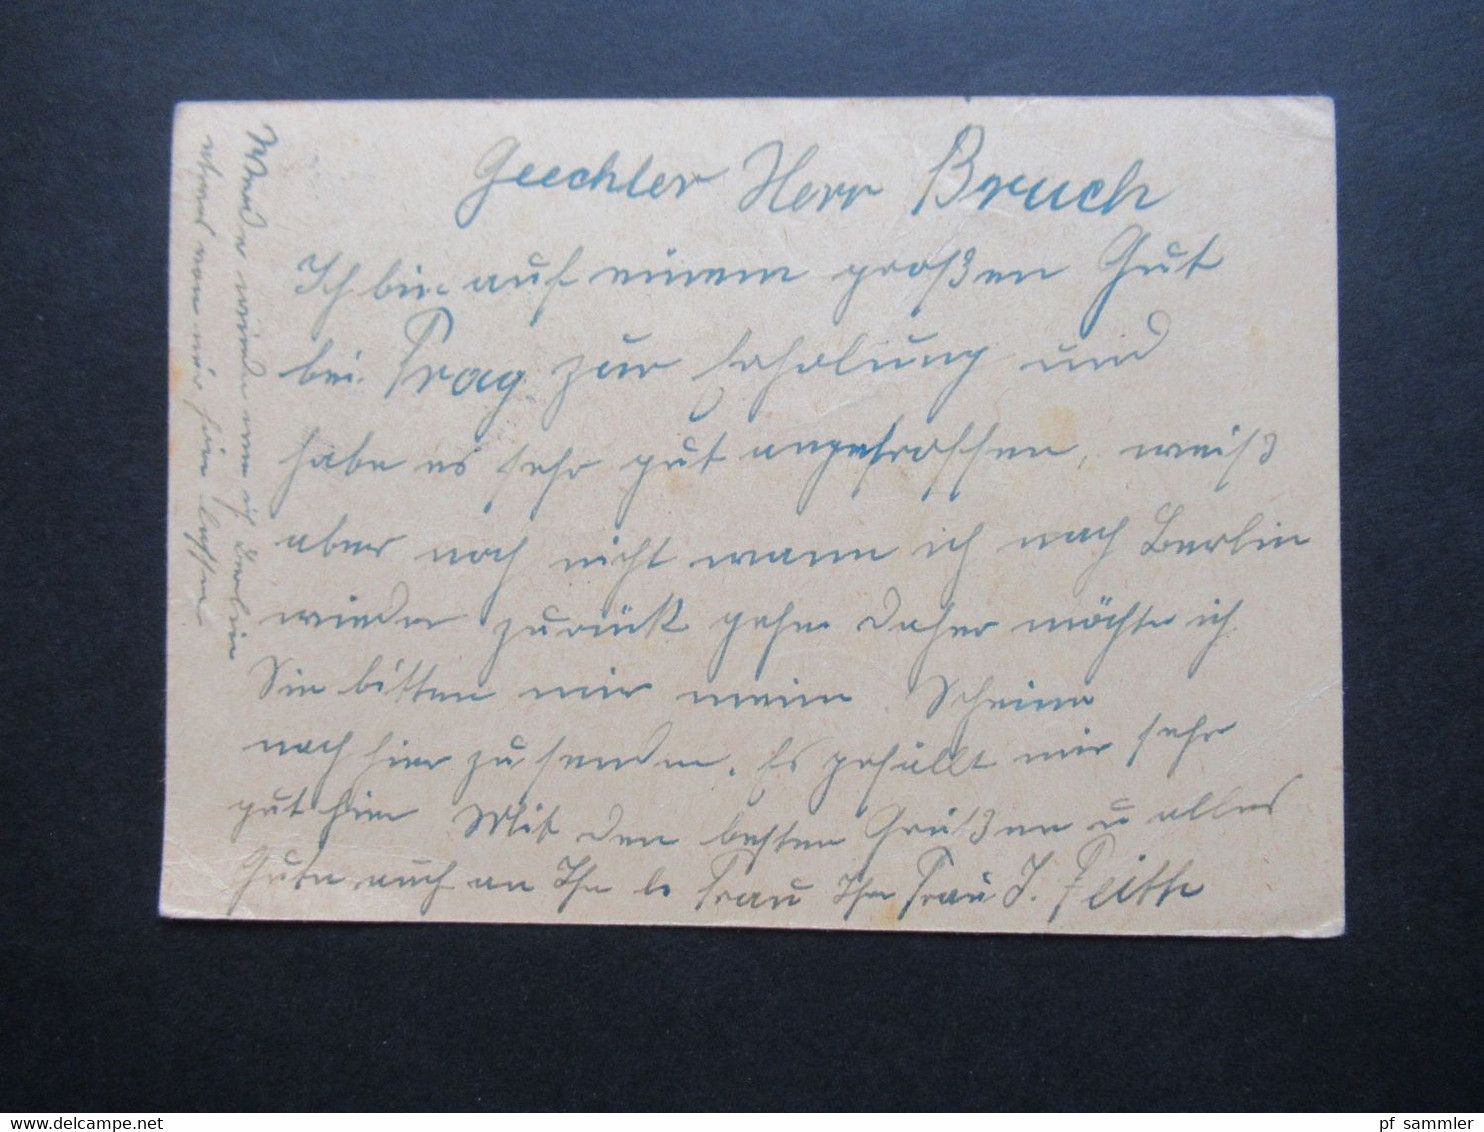 Geechter Herr Bruch
Ich bin auf einem großen Gut
bei Prag zur Erholung und
habe es sehr gut angetroffen, weiß
aber noch nicht wann ich nach Berlin
wieder zurück gehe Daher möchte ich
Sie bitten mir meine Scheine
nach hier zu senden. Es gefällt mir sehr
gut hier Mit den besten Grüßen u alles
Gute auch an Ihre lb Frau Ihre Frau J. Feith
Werde wieder wenn ich Berlin
etwas von mir hören lassen
pf_sammler